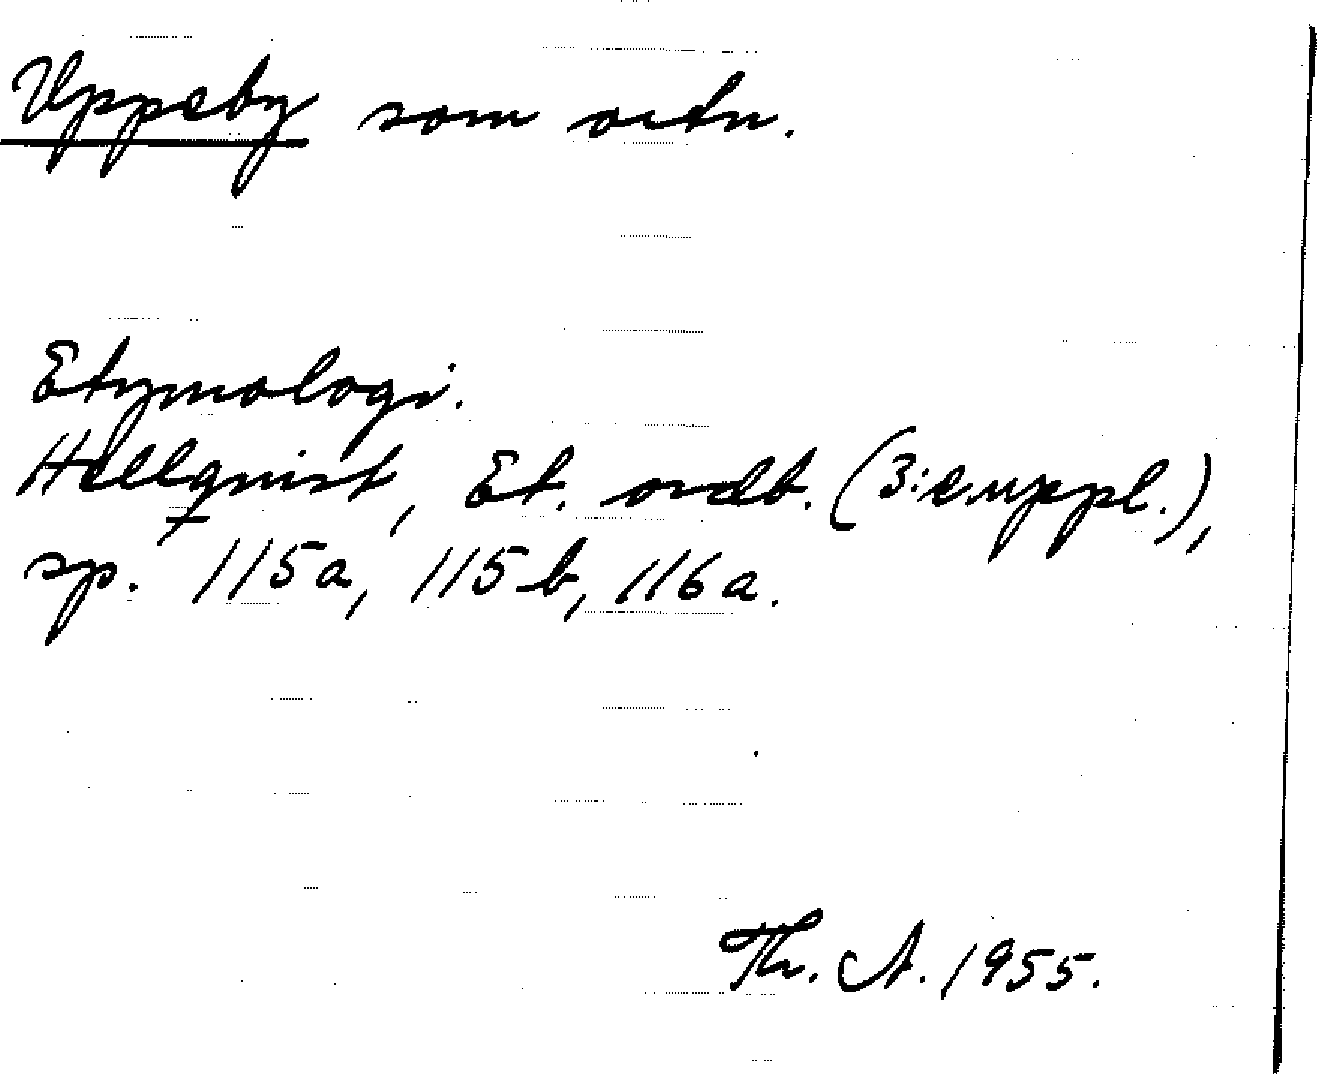 Uppeby som ortn.
Etymologi.
Hellquist, Et. ordb. (3:e uppl.),
sp. 115a, 115b, 116a.
Th. A. 1955.